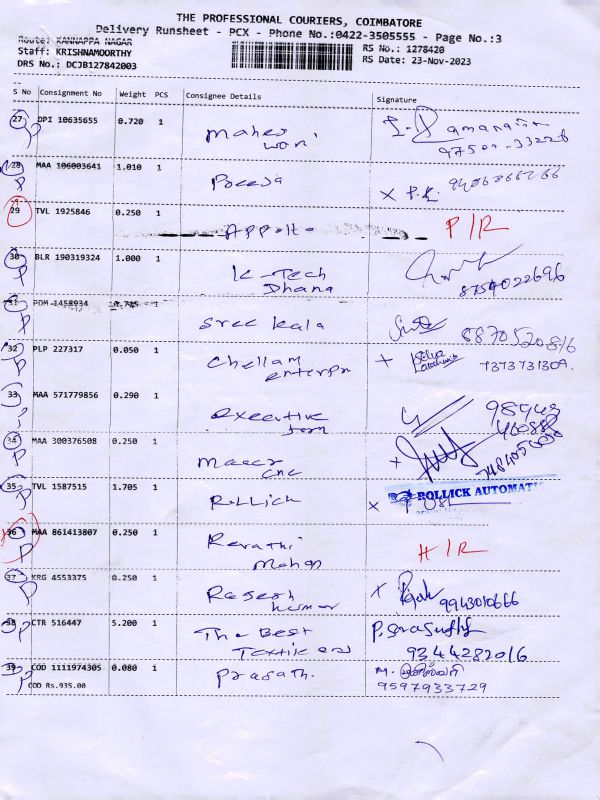 THE PROFESSIONAL COURIERS, COIMBATORE
Delivery Runsheet - PCX - Phone No.:0422-3505555 - Page No.:3
Route: KANNAPPA NAGAR
RS No.: 1278420
Staff: KRISHNAMOORTHY
RS Date: 23-Nov-2023
DRS No.: DCJB127842003
S No Consignment No Weight PCS Consignee Details Signature
27 DPI 10635655 0.720 1
Mahes wari
97500-33226
28 MAA 106003641 1.010 1
Pooja
29 TVL 1925846 0.250 1
P/R
30 BLR 190319324 1.000 1
K-Tech
Dhana
8754022696
31 PDM 1458934 0.745 1
Sree Kala
8870520816
32 PLP 227317 0.050 1
Chellam
enterpr
7373731309.
33 MAA 571779856 0.290 1
executive
34 MAA 300376508 0.250 1
cnc
35 TVL 1587515 1.705 1
Rollick
ROLLICK AUTOMAT
36 MAA 861413807 0.250 1
Revathi
Mohan
H/R
37 KRG 4553375 0.250 1
Rasesh
kumar
9943010666
38 CTR 516447 5.200 1
The Best
9344282016
39 COD 1111974305 0.080 1
COD Rs.935.00
Prasath.
9597933729